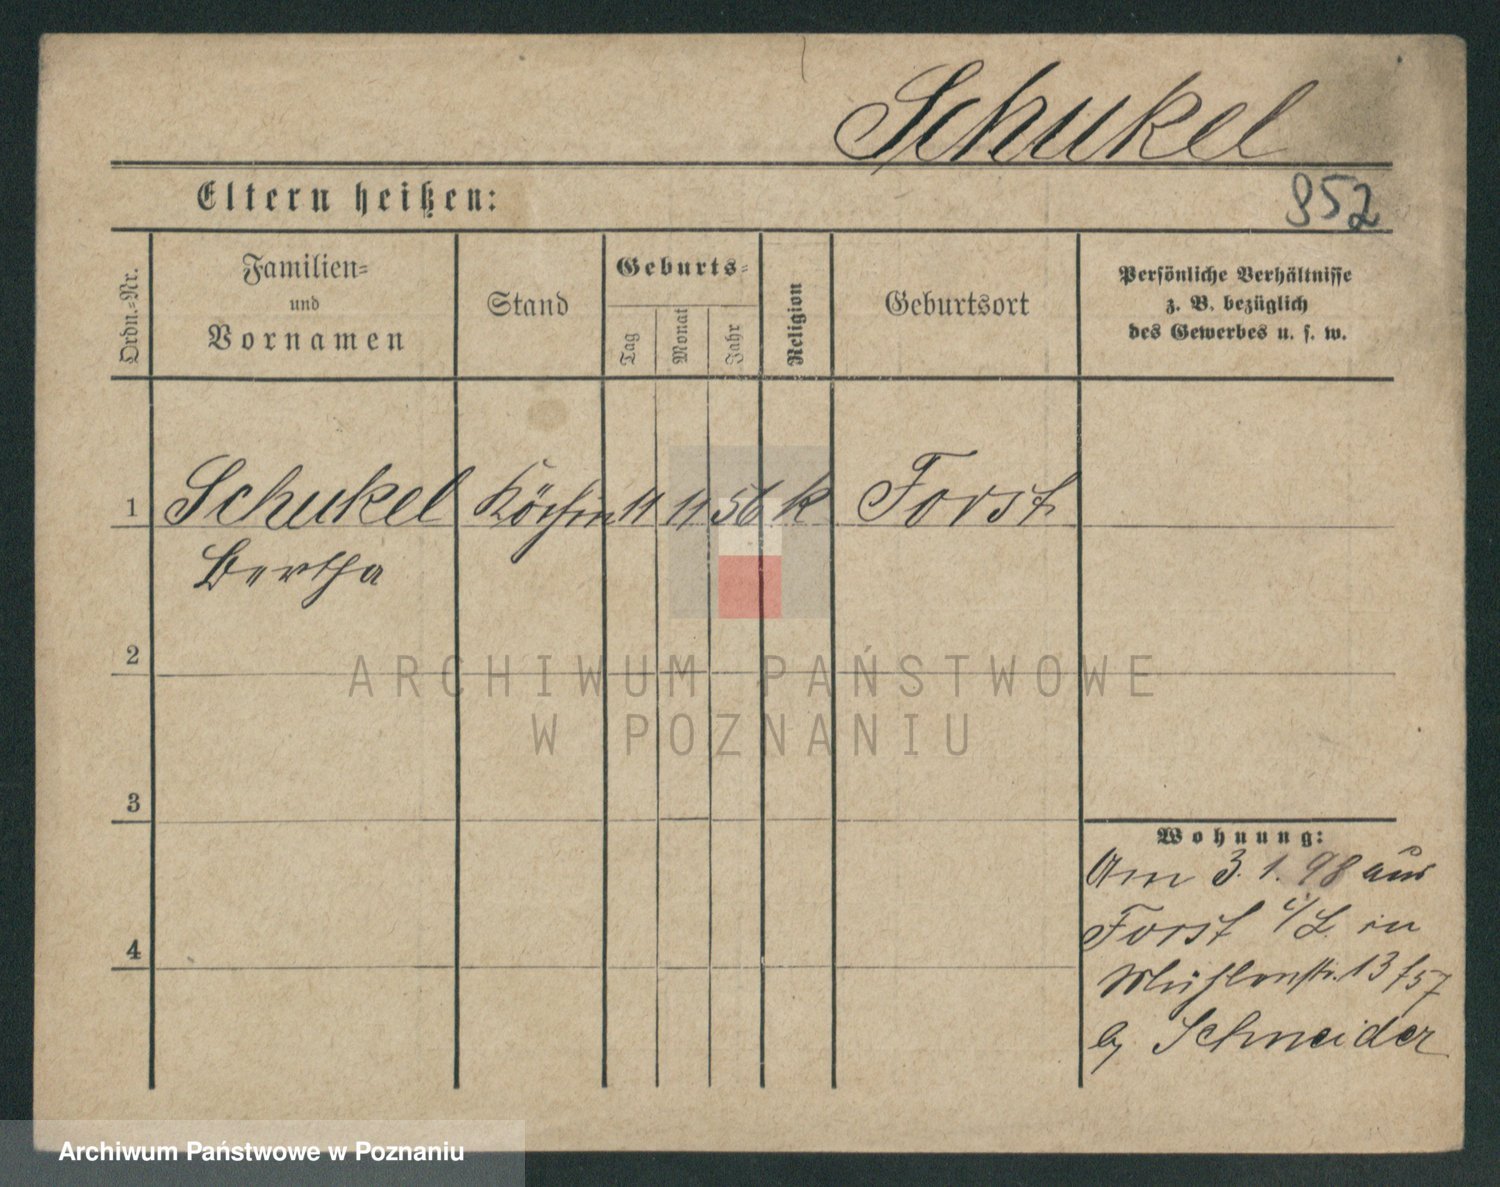 Schukel
Eltern heißen:
952
Ordn.-Nr.
Familien-
und
Vornamen
Stand
Geburts-
Tag
Monat
Jahr
Religion
Geburtsort
Persönliche Verhältnisse
z. B. bezüglich
des Gewerbes u. s. w.
1 Schukel Köchin 11 11 56 k Forst
Bertha
2
ARCHIWUM PAŃSTWOWE
W POZNANIU
3
Wohnung:
Am 3. 1. 98 aus
Forst i/L. in
4
Mühlenstr. 13
b/ Schneider
Archiwum Państwowe w Poznaniu